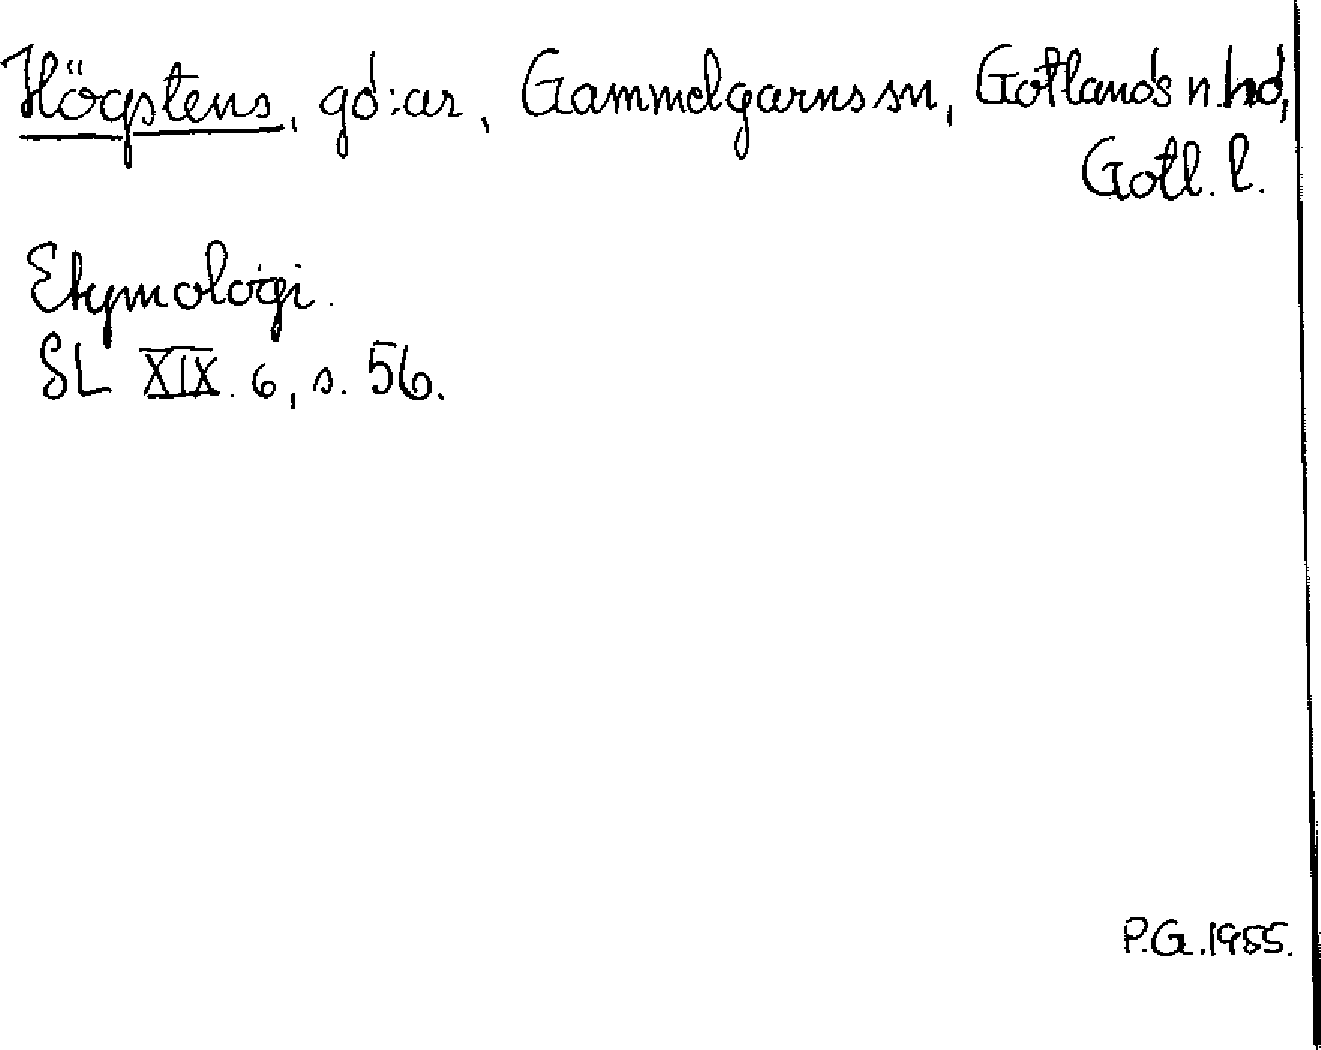 Högstens, gd:ar, Gammelgarns sn, Gotlands n. hd,
Gotl. l.
Etymologi.
SL XIX. 6, s. 56.
P.G. 1955.